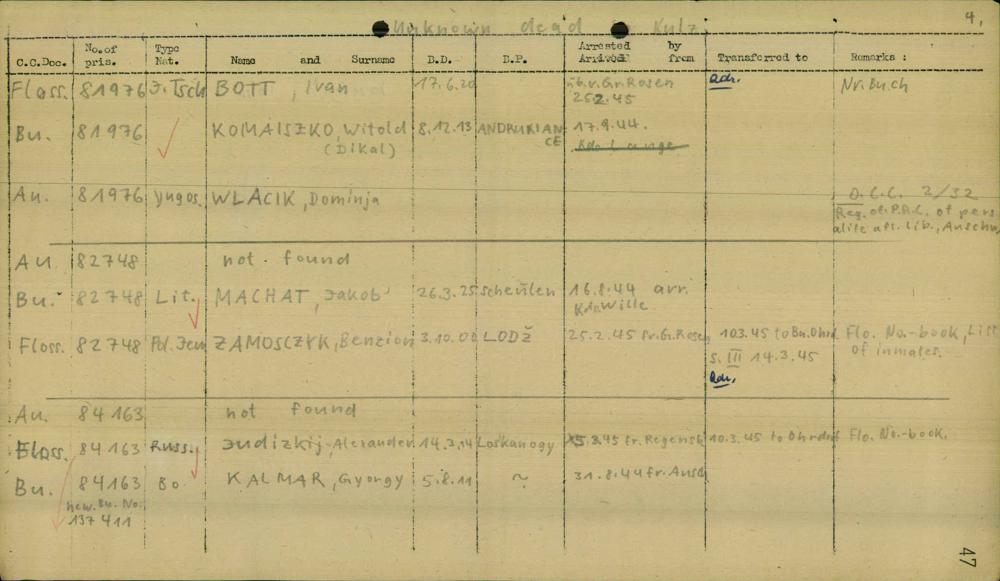 Unknown dead Kulz 4.
C.C.Doc. No.of pris. Type Nat. Name and Surname B.D. B.P. Arrested by Arrived from Transferred to Remarks :
Floss. 81976 J.Tsch BOTT, Ivan 17.6.20 üb.v.Gr.Rosen adr. Nr.Buch
25.2.45
Bu. 81976 KOMAISZKO, Witold 8.12.13 ANDRUKIAN- 17.9.44.
(Dikal) CE Kdo Lange
Au. 81976 Yugos. WLACIK, Dominja O.C.C. 2/32
Reg. of. of pers
alite aft. Lib., Auschw.
Au. 82748 not found
Bu. 82748 Lit. MACHAT, Jakob 26.3.25 Scheulen 16.8.44 arr.
Kdo Wille
Floss. 82748 Pol.Jew ZAMOSCZYK, Benzion 3.10.00 LODŽ 25.2.45 fr.G.Rosen 10.3.45 to Bu.Ohrd Flo. No.-book, List
S. III 14.3.45 of inmates.
adr.
Au. 84163 not found
Floss. 84163 Russ. Judizkij, Alexander 14.3.14 Loskanogy 5.3.45 fr. Regensb 10.3.45 to Ohrdrf Flo. No.-book.
Bu. 84163 Bo. KALMAR, Gyorgy 5.8.11 ~ 31.8.44 fr. Ausch
new. Bu. No.
137411
47